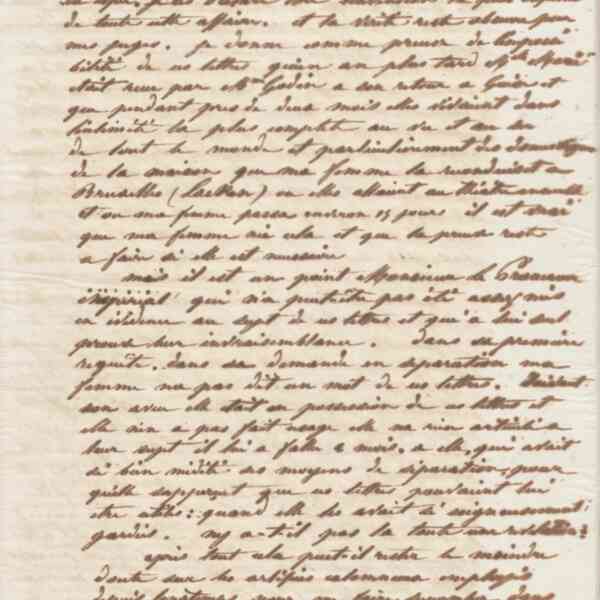 de toute cette affaire. et la vérité reste obscure pour
mes juges. je donne comme preuve de l'impossi
bilité de ces lettres qu'un an plus tard Mlle Marie
était reçue par Mme Godin a son retour a Guise et
que pendant près de deux mois elles vécurent dans
l'intimité la plus complète au vu et au su
de tout le monde et particulièrement des domestiques
de la maison que ma femme la reconduisit a
Bruxelles (Laeken) ou elles allaient au théâtre ensemble
et ou ma femme passa environ 15 jours il est vrai
que ma femme nie cela et que la preuve reste
a faire si elle est nécessaire
mais il est un point Monsieur le Procureur
impérial qui n'a peut être pas été assez mis
en évidence au sujet de ces lettres et qui a lui seul
prouve leur invraisemblance. dans sa première
requête. dans sa demande en séparation ma
femme n'a pas dit un mot de ces lettres. Suivant
son aveu elle était en possession de ces lettres et
elle n'en a pas fait usage elle n'a rien articulé a
leur sujet il lui a fallu 2 mois. a elle, qui avait
si bien médité ses moyens de séparation, pour
qu'elle supposât que ces lettres pouvaient lui
être utiles: quand elle les avait si soigneusement
gardées. n'y a-t-il pas la toute une révélation?
après tout cela peut-il rester le moindre
doute sur les artifices calomnieux employés
depuis longtemps pour me faire succomber dans